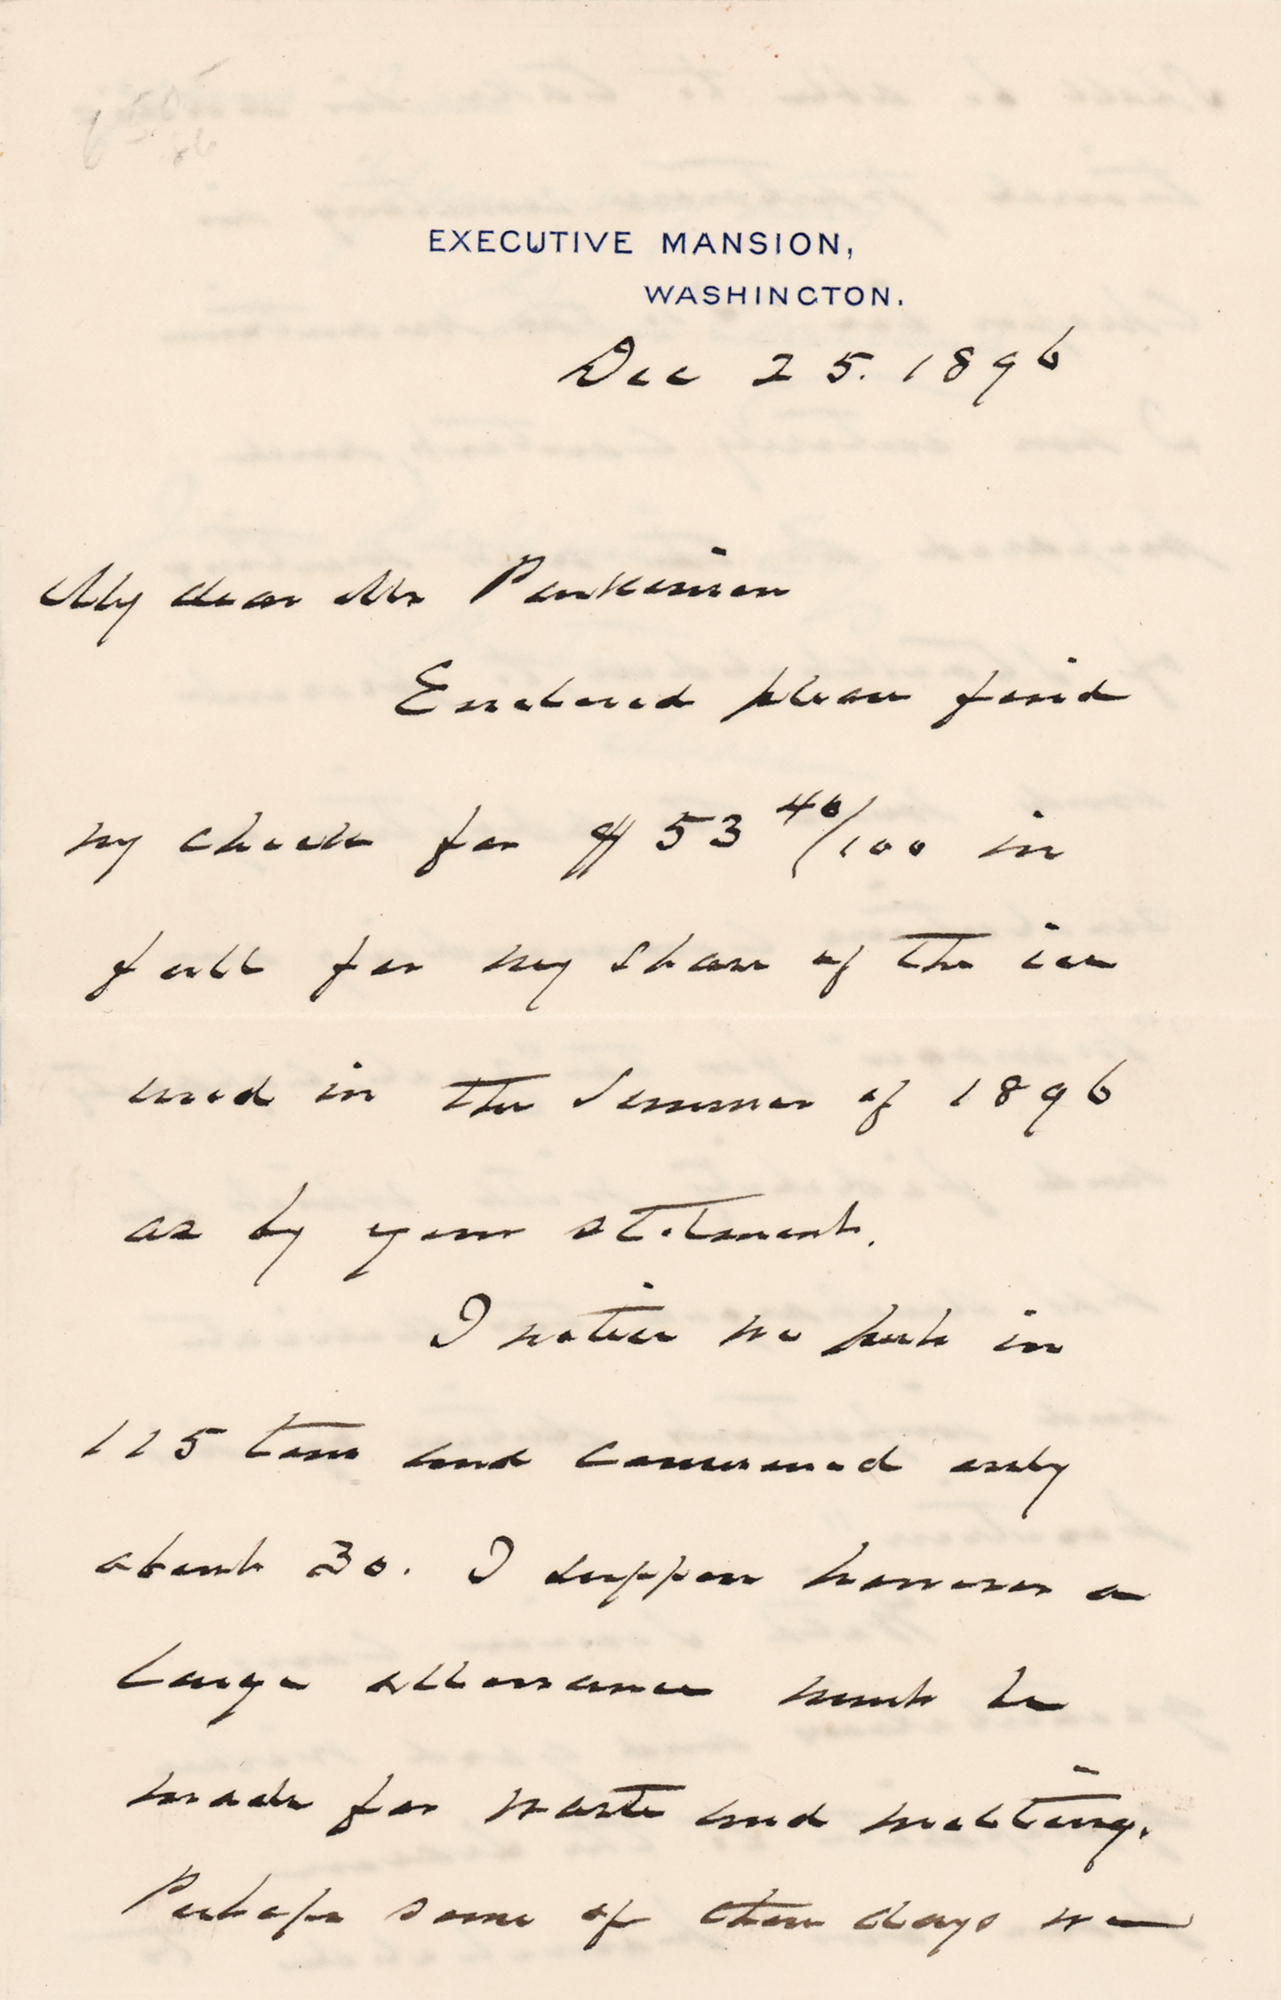 EXECUTIVE MANSION,
WASHINGTON.
Dec 25. 1896
My dear Mr Parkinson
Enclosed please find
my check for $53 40/100 in
full for my share of the ice
used in the Summer of 1896
as by your statement.
I notice we put in
115 tons and consumed only
about 30. I suppose however a
large allowance must be
made for waste and melting.
Perhaps some of these days we